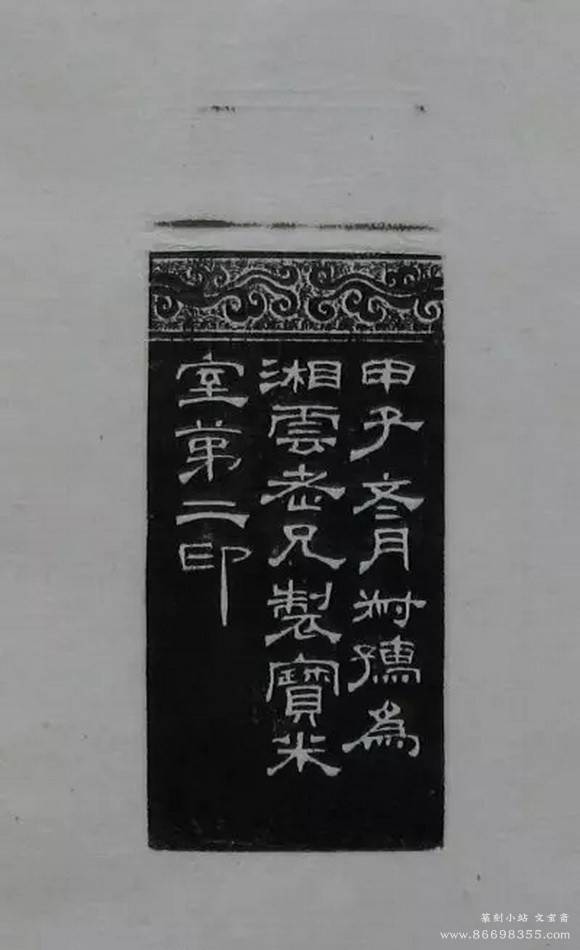 甲子月叔孺為
湘雲老兄製寶米
室第二印
篆刻小站 文玄斋
www.86698355.com